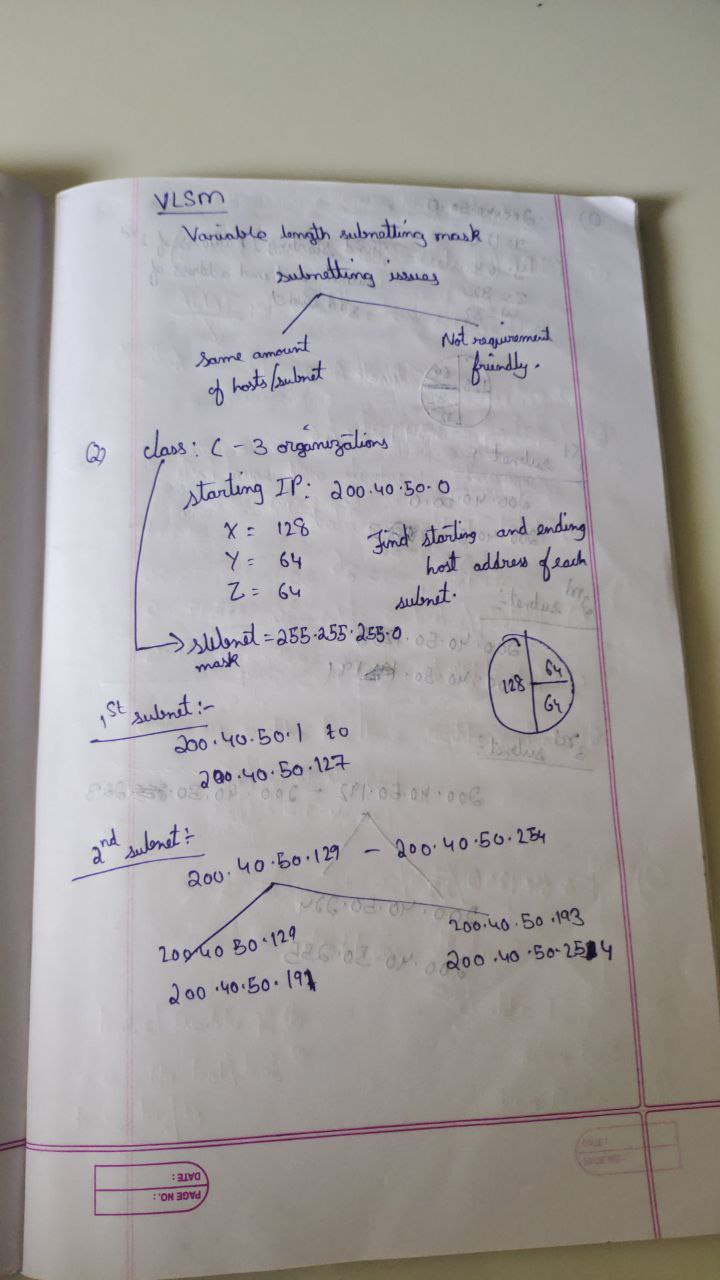 VLSM
Variable length subnetting mask
subnetting issues
same amount
of hosts/subnet
Not requirement
friendly.
Q) class: C - 3 organizations
starting IP: 200.40.50.0
X = 128
Y = 64
Z = 64
Find starting and ending
host address of each
subnet.
subnet = 255.255.255.0
mask
128
64
64
1st subnet:-
200.40.50.1 to
200.40.50.127
2nd subnet:-
200.40.50.129 - 200.40.50.254
200.40 50.129
200.40.50.191
200.40.50.193
200.40.50.254
DATE:
PAGE NO.: